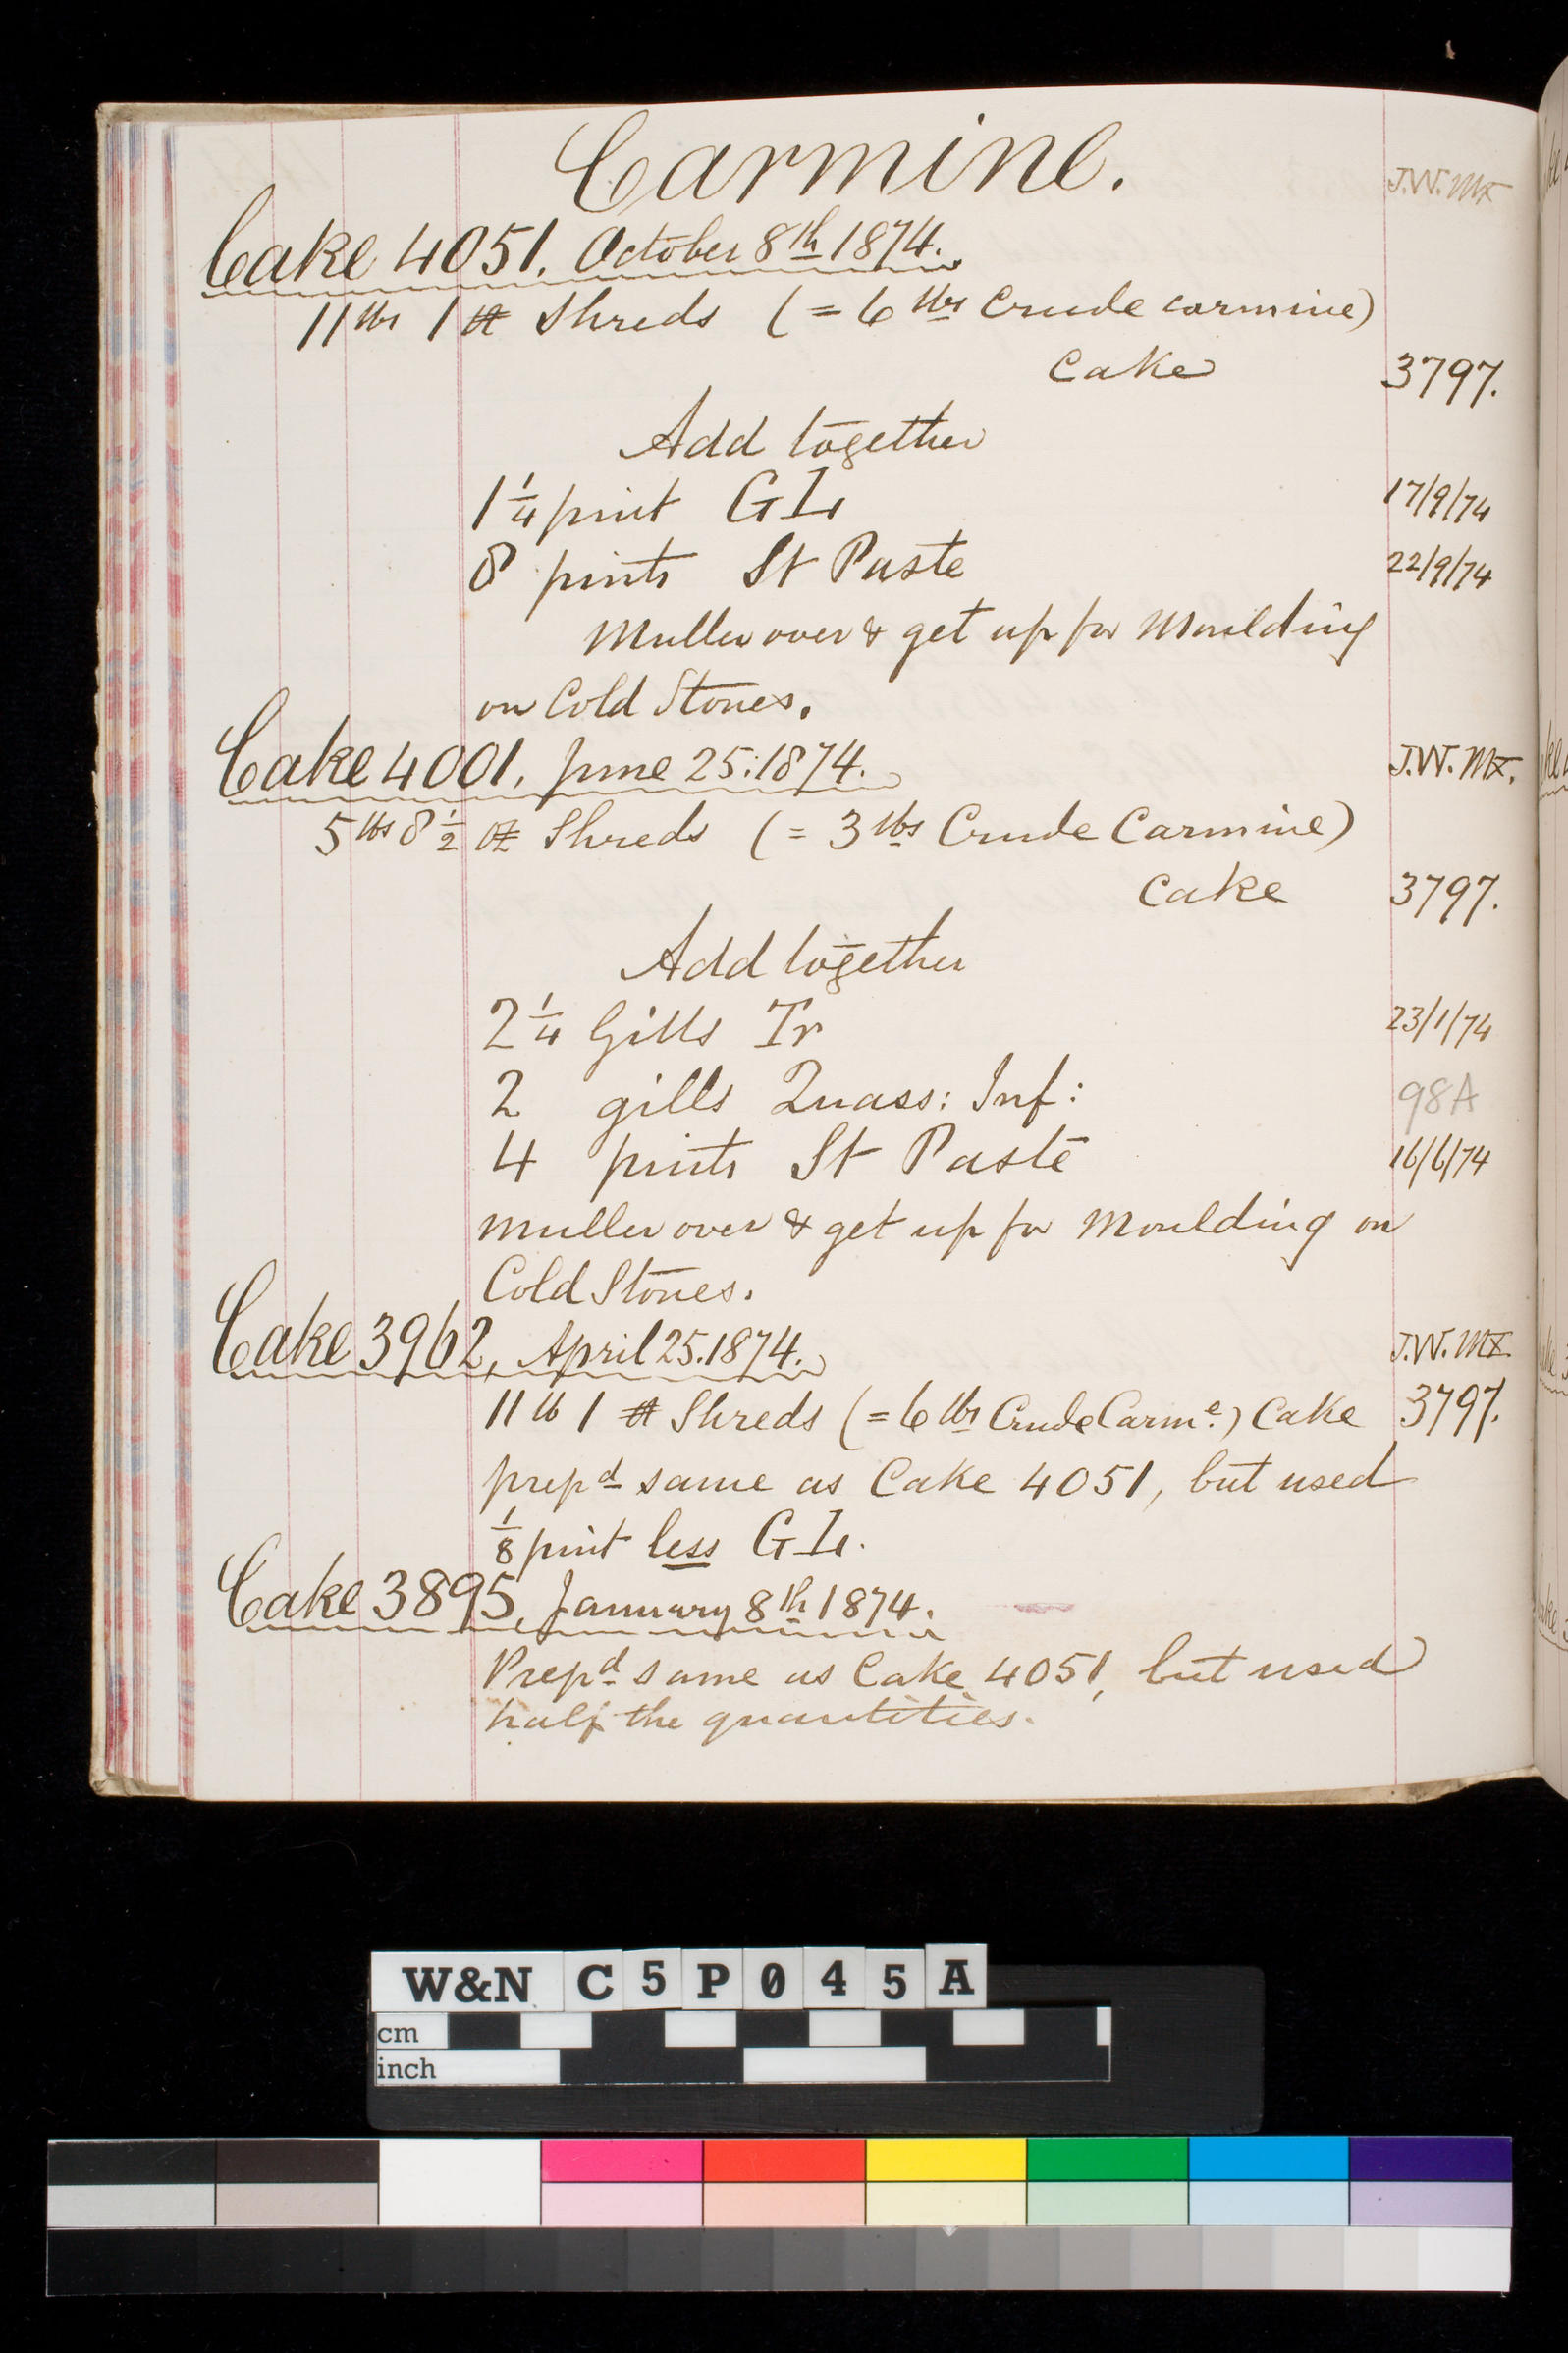 Carmine.
J.W. Mx
Cake 4051. October 8th 1874.
11 lbs 1 oz Shreds (= 6 lbs Crude carmine)
Cake 3797.
Add together
1 1/4 pint GL 17/9/74
8 pints St Paste 22/9/74
Muller over & get up for Moulding
on Cold Stones.
Cake 4001. June 25: 1874. J.W. Mx.
5 lbs 8 1/2 oz Shreds (= 3 lbs Crude Carmine)
Cake 3797.
Add together
2 1/4 Gills Tr 23/1/74
2 gills Quass: Inf: 98A
4 pints St Paste 16/6/74
muller over & get up for Moulding on
Cold Stones.
Cake 3962, April 25. 1874. J.W. Mx.
11 lb 1 oz Shreds (= 6 lbs Crude Carme.) Cake 3797.
prepd same as Cake 4051, but used
1/8 pint less GL.
Cake 3895, January 8th 1874.
Prepd same as Cake 4051, but used
half the quantities.
W&N C5P045A
cm
inch